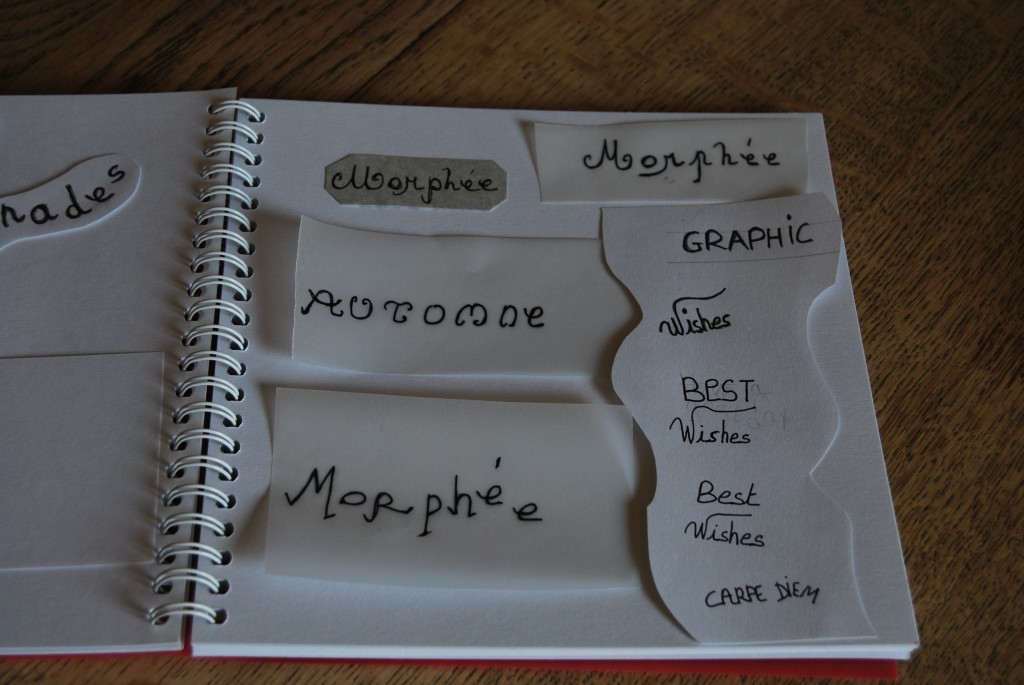 nades
Morphée
Morphée
AUTOMNE
Morphée
GRAPHIC
Wishes
BEST
Wishes
Best
Wishes
CARPE DIEM